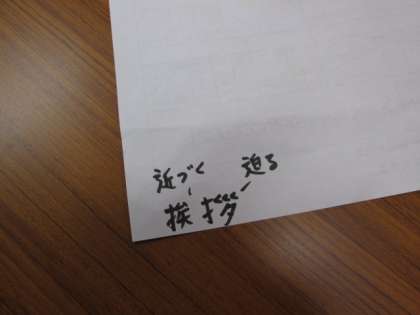 近づく 迫る
挨拶